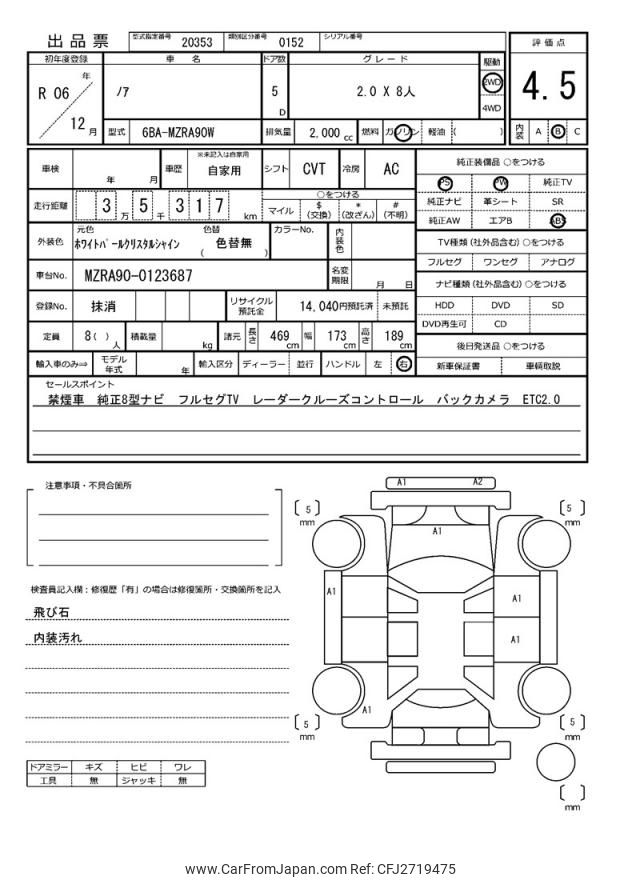 出品票 型式指定番号 20353 類別区分番号 0152 シリアル番号
初年度登録 車名 ドア数 グレード 駆動 評価点
R 06 年 12 月 ノア 5 D 2.0 X 8人 2WD 4WD 4.5
型式 6BA-MZRA90W 排気量 2,000 cc 燃料 ガソリン 軽油 ( ) 内装 A B C
車検 年 月 車歴 ※未記入は自家用 自家用 シフト CVT 冷房 AC
走行距離 3 万 5 千 3 1 7 km
○をつける
マイル $ (交換) * (改ざん) # (不明)
外装色 元色 ホワイトパールクリスタルシャイン 色替 ( 色替無 ) カラーNo. 内装色
車台No. MZRA90-0123687 名変期限 月 日
登録No. 抹消 リサイクル預託金 14,040円預託済 未預託
定員 8( ) 人 積載量 kg 諸元 長さ 469 cm 幅 173 cm 高さ 189 cm
輸入車のみ⇒ モデル年式 年 輸入区分 ディーラー 並行 ハンドル 左 右
純正装備品 ○をつける
PS PW 純正TV
純正ナビ 革シート SR
純正AW エアB ABS
TV種類 (社外品含む) ○をつける
フルセグ ワンセグ アナログ
ナビ種類 (社外品含む) ○をつける
HDD DVD SD
DVD再生可 CD
後日発送品 ○をつける
新車保証書 車輌取説
セールスポイント
禁煙車 純正8型ナビ フルセグTV レーダークルーズコントロール バックカメラ ETC2.0
注意事項・不具合箇所
検査員記入欄：修復歴「有」の場合は修復箇所・交換箇所を記入
飛び石
内装汚れ
ドアミラー キズ ヒビ ワレ
工具 無 ジャッキ 無
A1 A2
[ 5 ] mm [ 5 ] mm
A1
A1 A1
A1
A1
[ 5 ] mm [ 5 ] mm
[ ] mm
www.CarFromJapan.com Ref: CFJ2719475